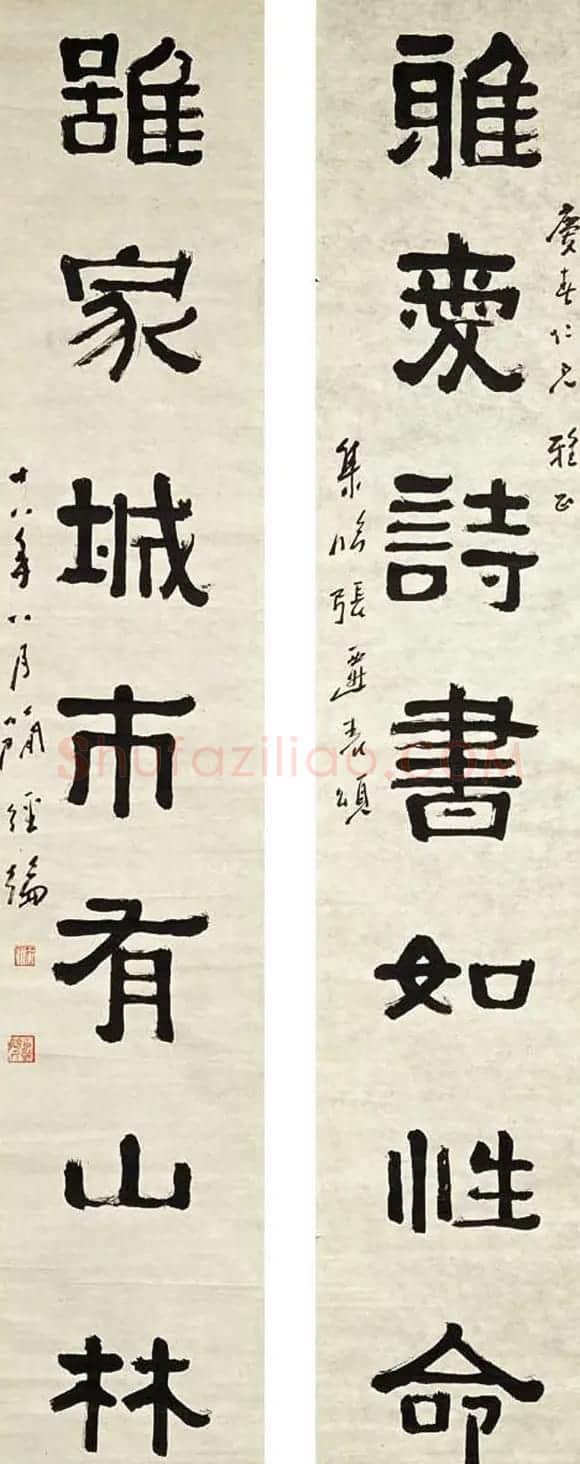 慶春仁兄 雅正
雅愛詩書如性命
集臨張遷表頌
雖家城市有山林
十八年八月簡經綸
Shufaziliao.COM